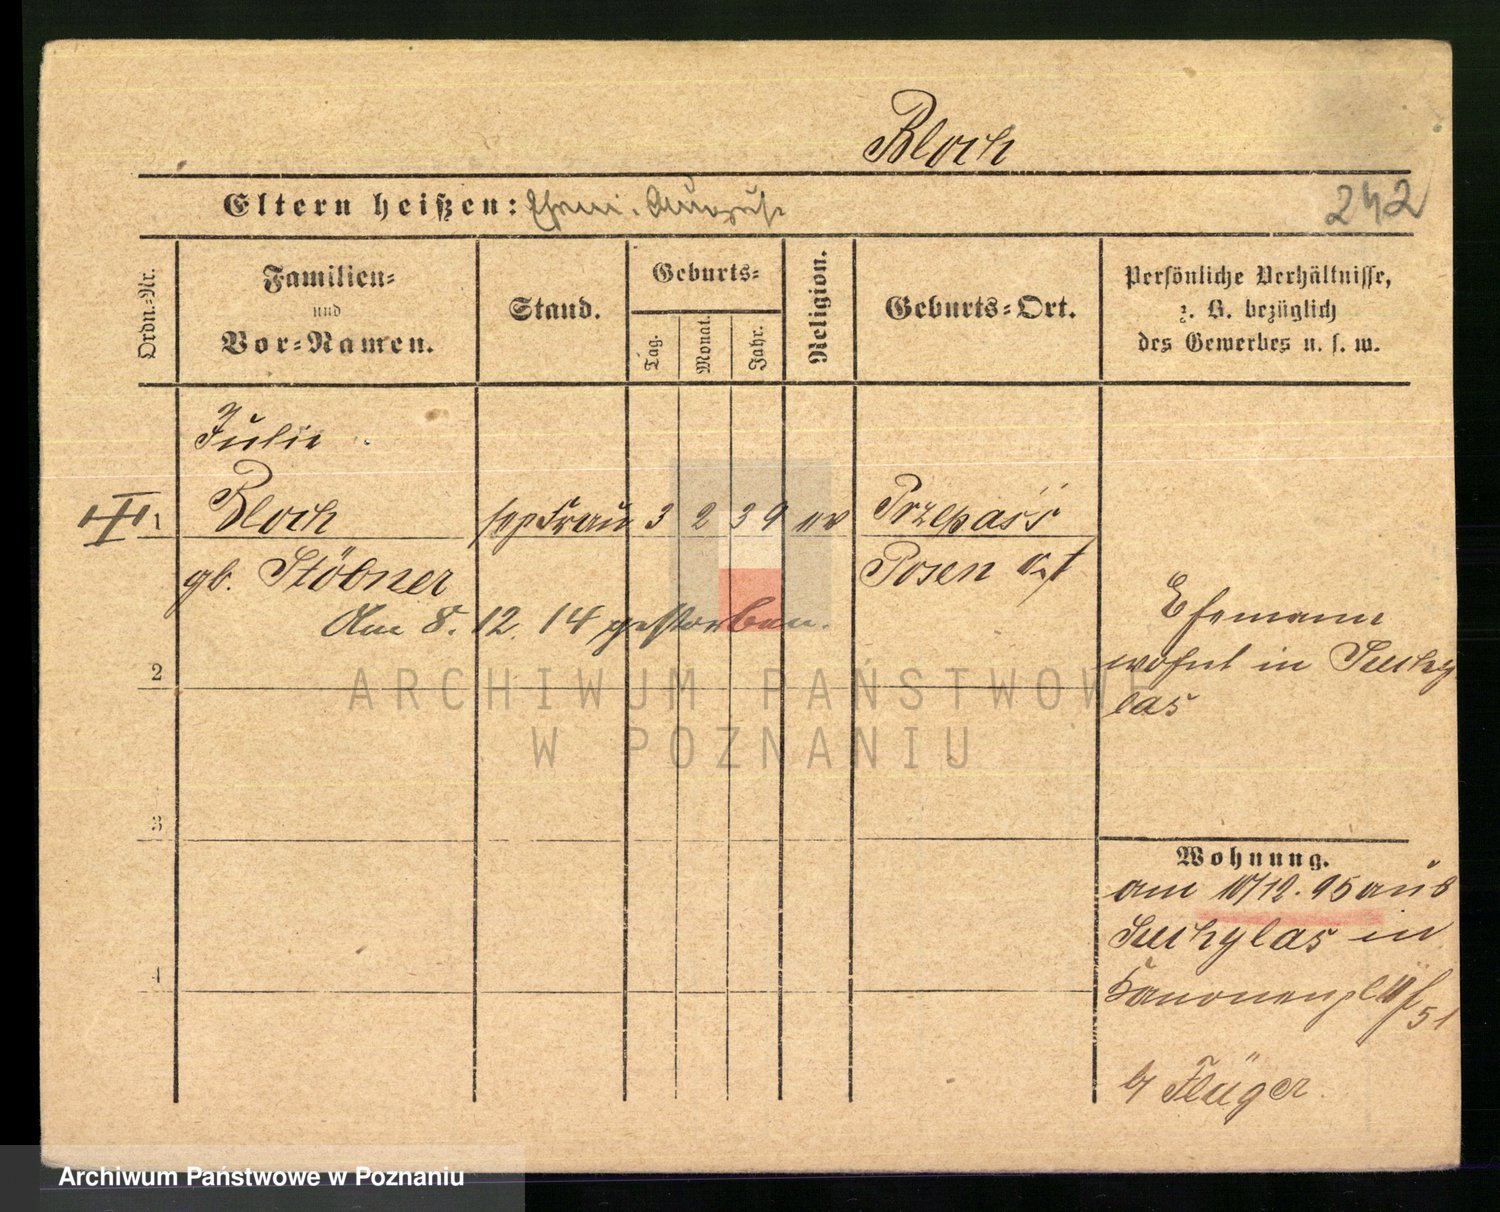 Bloch
Eltern heißen: August
242
Ordn.-Nr.
Familien-
und
Vor-Namen.
Stand.
Geburts-
Tag.
Monat.
Jahr.
Religion.
Geburts-Ort.
Persönliche Verhältnisse,
z. B. bezüglich
des Gewerbes u. s. w.
Julie
III 1 Bloch sep Frau 3 2 39 ev
gb. Stöbner Posen Ost
Am 8. 12. 14 gestorben.
Ehemann
wohnt in Suchy
las
2
3
4
Wohnung.
am 10/12. 95 aus
Suchylas in
Kanonenpl
51
b/ Flüger.
ARCHIWUM PAŃSTWOWE
W POZNANIU
Archiwum Państwowe w Poznaniu